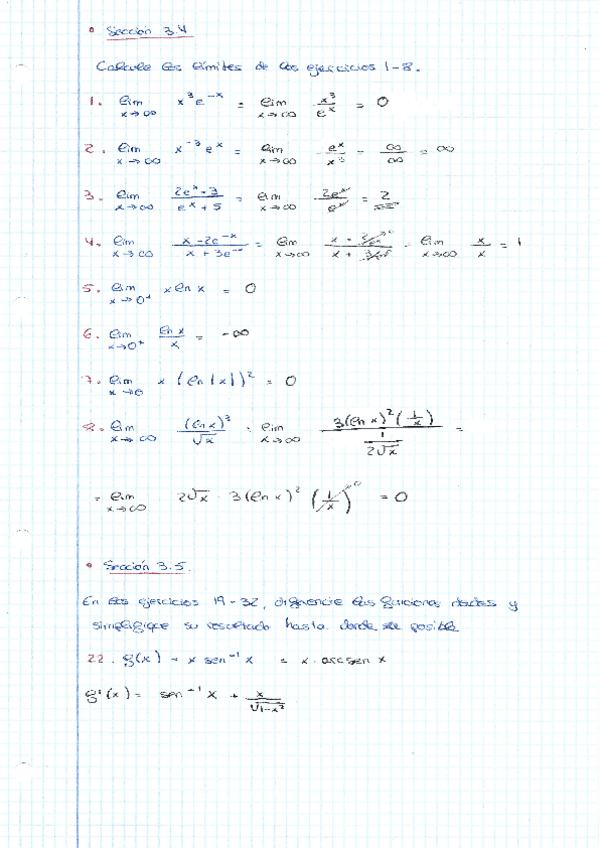 • Sección 3.4
Calcule los límites de los ejercicios 1-8.
1. lim x→∞ x³e⁻ˣ = lim x→∞ x³/eˣ = 0
2. lim x→∞ x⁻³eˣ = lim x→∞ eˣ/x³ = ∞/∞ = ∞
3. lim x→∞ (2eˣ-3)/(eˣ+5) = lim x→∞ 2eˣ/eˣ = 2
4. lim x→∞ (x-2e⁻ˣ)/(x+3e⁻ˣ) = lim x→∞ (x-2/eˣ)/(x+3/eˣ) = lim x→∞ x/x = 1
5. lim x→0⁺ x ln x = 0
6. lim x→0⁺ ln x/x = -∞
7. lim x→0 x (ln|x|)² = 0
8. lim x→∞ (ln x)³/√x = lim x→∞ 3(ln x)²(1/x)/(1/2√x) =
= lim x→∞ 2√x · 3(ln x)² (1/x)⁰ = 0
• Sección 3.5.
En los ejercicios 19-32, diferencie las funciones dadas y
simplifique su resultado hasta donde sea posible
22. g(x) = x sen⁻¹ x = x · arcsen x
g'(x) = sen⁻¹ x + x/√1-x²